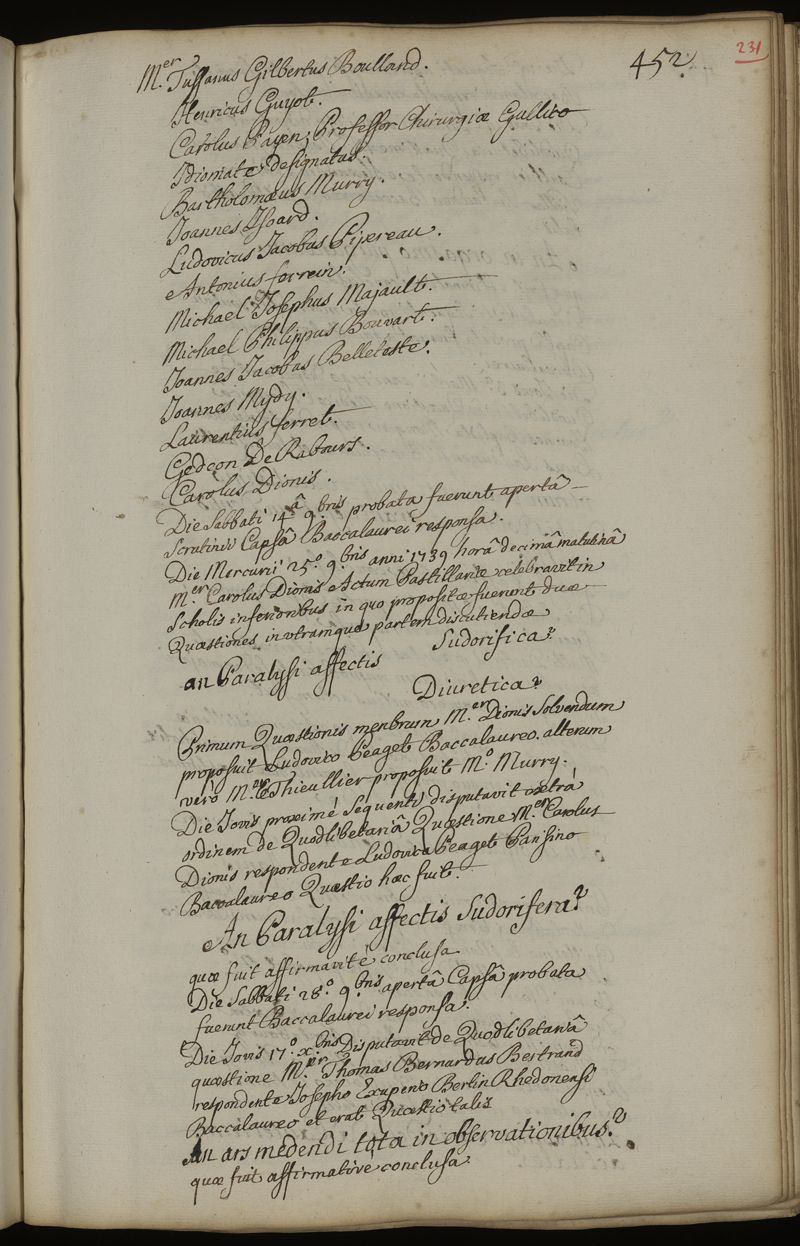 231
452.
M.er Tussanus Gilbertus Boulland.
Henricus Guyot.
Carolus Payen, Professor Chirurgiæ Gallico
Idiomate designatus.
Bartholomæus Murry.
Joannes Isoard.
Ludovicus Jacobus Pipereau.
Antonius ferrein.
Michael Josephus Majault.
Michael Philippus Bouvart.
Joannes Jacobus Belleteste.
Joannes Mydy.
Laurentius ferret.
Gedeon De Rabours.
Carolus Dionis.
Die Sabbati 14.â 9.bris probata fuerunt apertâ
Scrutinii Capsâ Baccalaurei responsa.
Die Mercurii 25.o 9.bris anni 1739 horâ decimâ matutinâ
M.er Carolus Dionis Actum Pastillariæ celebravit in
Scholis inferioribus in quo propositæ fuerunt duæ
Quæstiones in utramque partem discutiendæ
Sudorifica?
an Paralysi affectis
Diuretica?
Primum Quæstionis menbrum M.er Dionis Solvendum
proposuit Ludovico Peaget Baccalaureo. alterum
verò M.er le Thieullier proposuit M.o Murry.
Die Jovis proximé Sequenti disputavit extrà
ordinem de Quodlibetariâ Quæstione M.er Carolus
Dionis respondente Ludovico Peaget Parisino
Baccalaureo Quæstio hæc fuit.
An Paralysi affectis Sudorifera?
quæ fuit affirmavité conclusa
Die Sabbati 28.o 9.bris apertâ Capsâ probata
fuerunt Baccalaurei responsa.
Die Jovis 17.o x.bris Disputavit de Quodlibetariâ
quæstione M.er Thomas Bernardus Bertrand
respondente Josepho Exupero Bertin Rhedonensi
Baccalaureo et erat Quæstio talis
An ars medendi tota in observationibus?
quæ fuit affirmative conclusa.